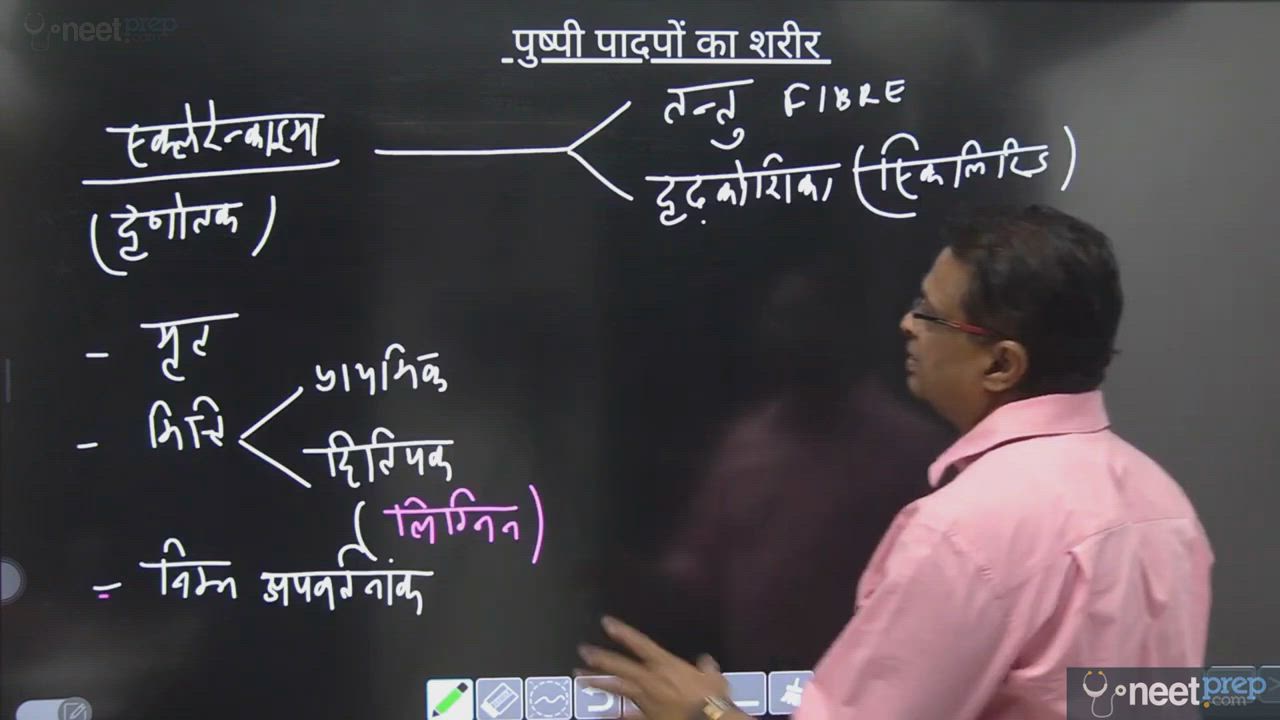 neetprep.com
पुष्पी पादपों का शरीर
स्क्लेरेन्काइमा
(दृणोतक)
तन्तु FIBRE
दृढ़कोशिका (स्किलिरिड)
- मृत
- भित्ति
प्राथमिक
द्वितियक
(लिग्निन)
- निम्न अपवर्तनांक
neetprep.com